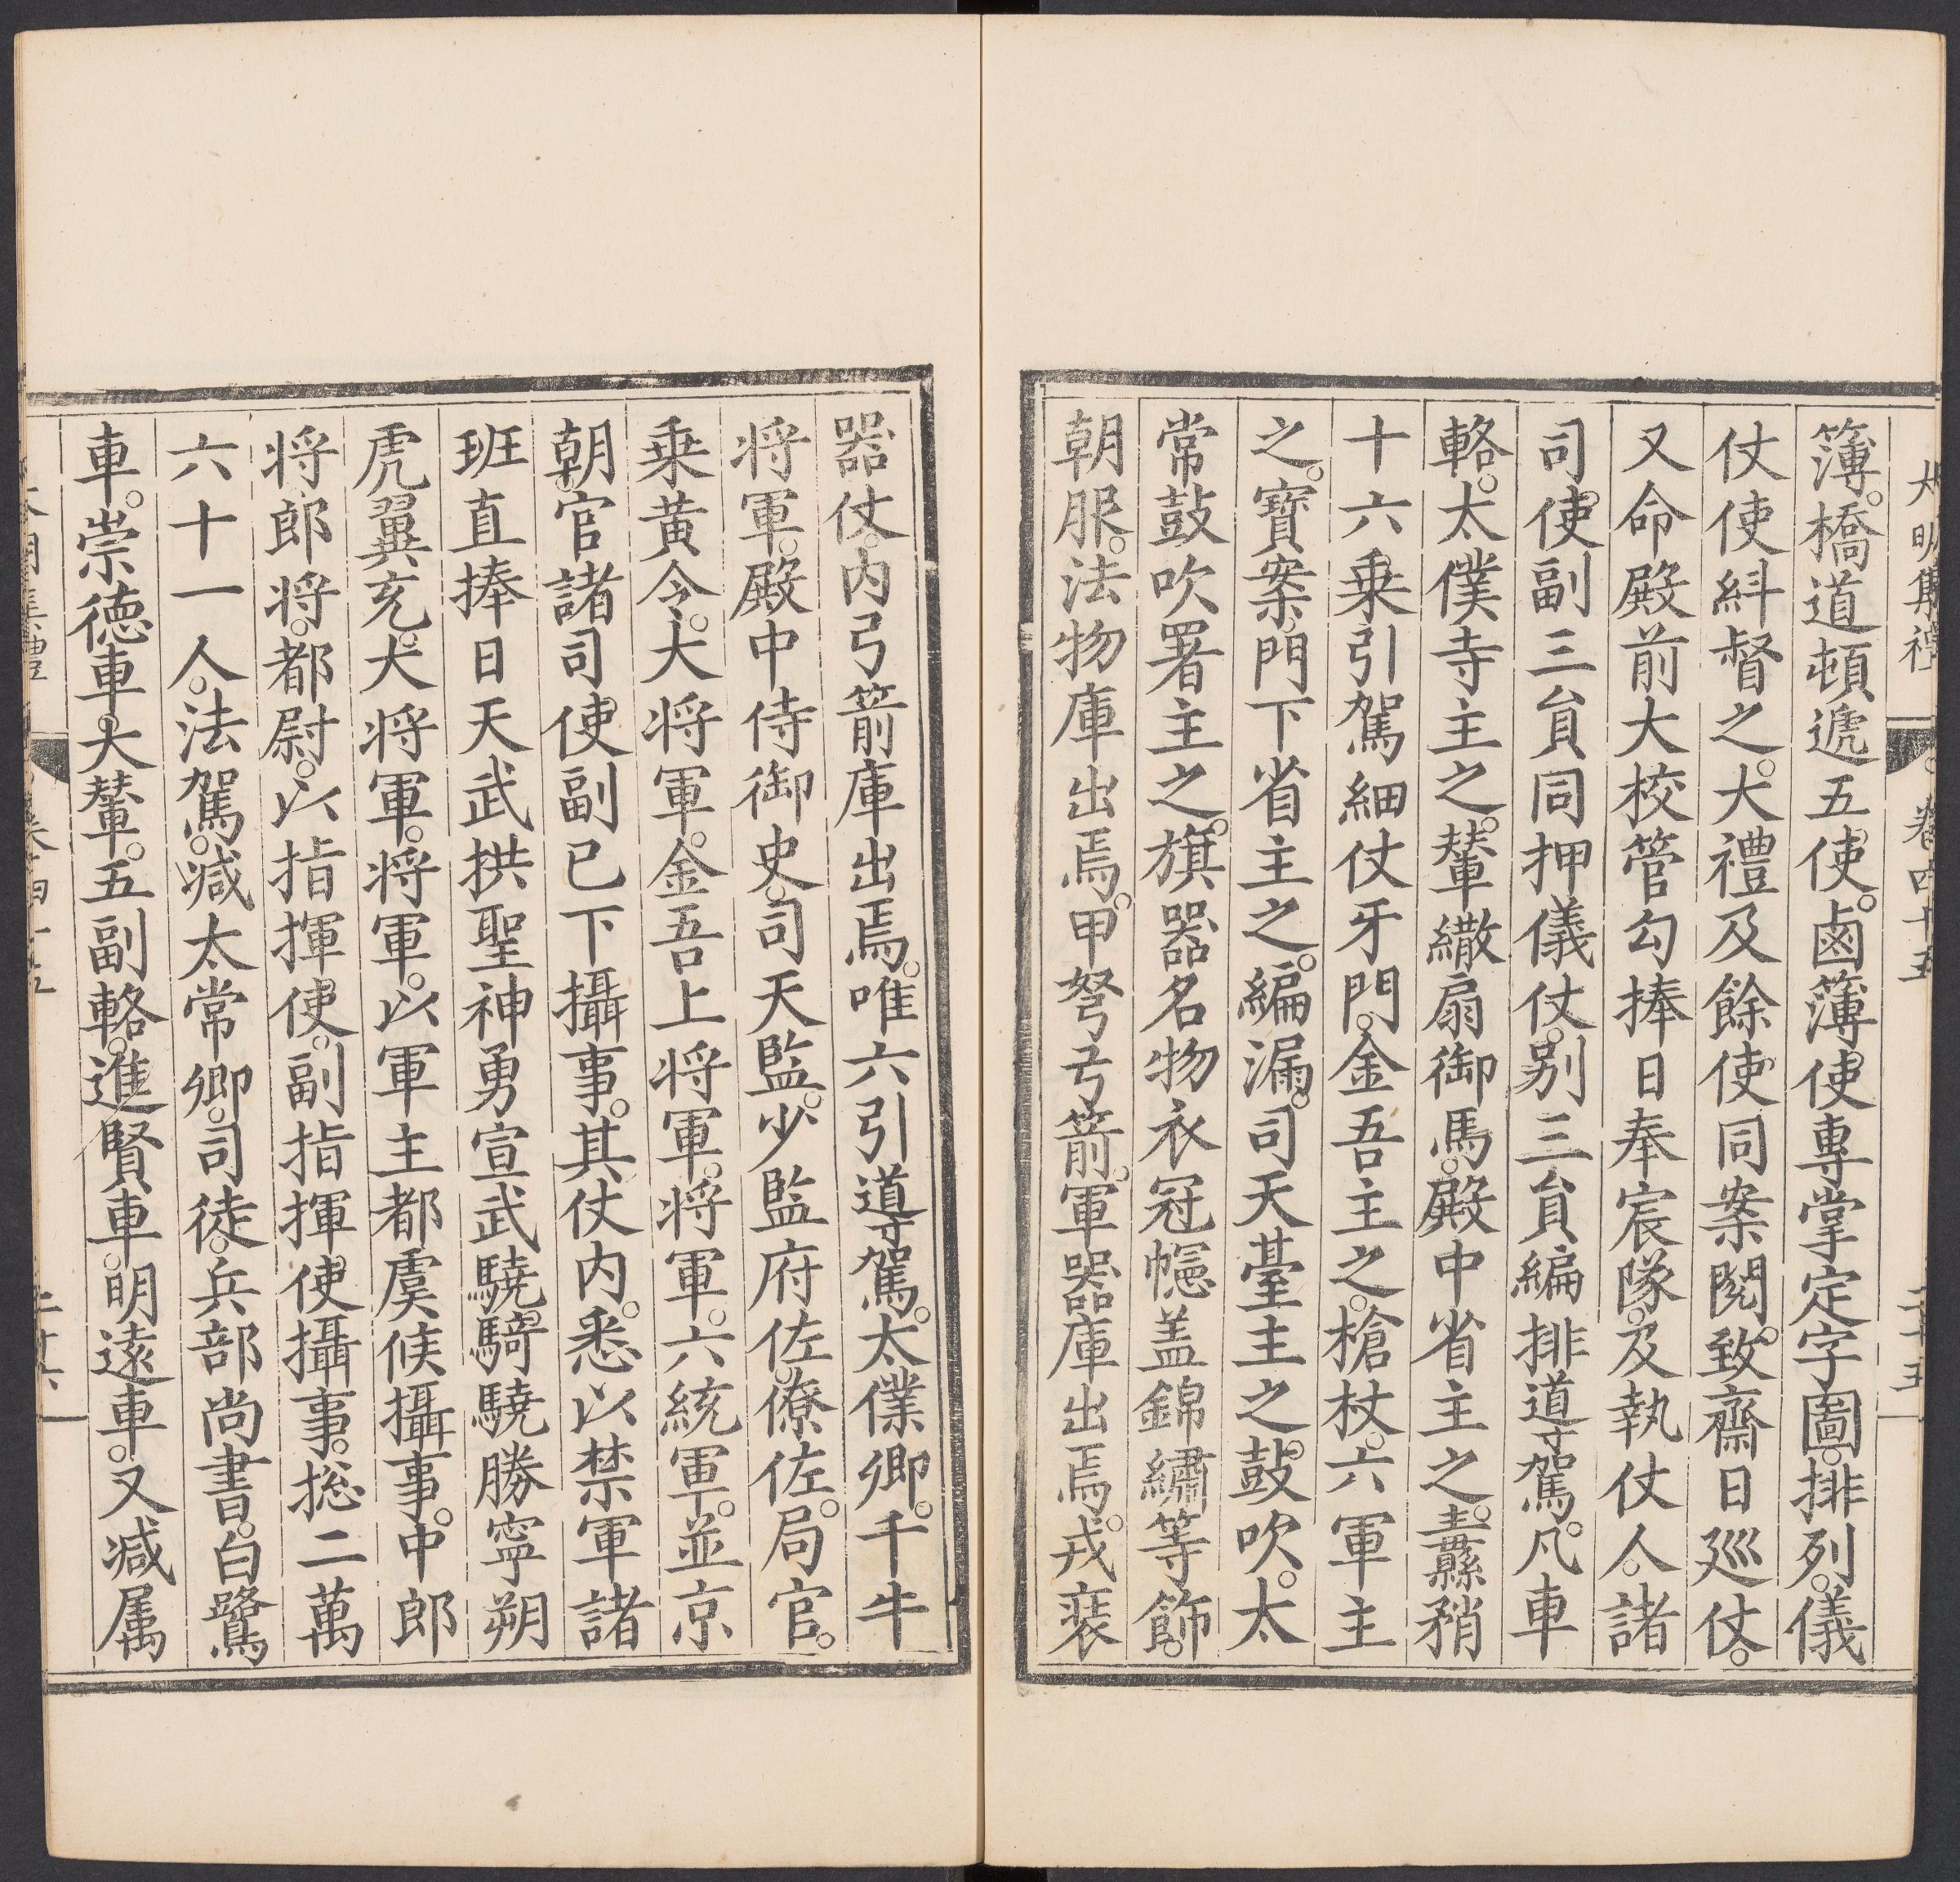 大明集禮 卷四十五 二十五
簿。橋道頓遞五使。鹵簿使專掌定字圖。排列。儀
仗使糾督之。大禮及餘使同案閱。致齋日廵仗。
又命殿前大校管勾捧日奉宸隊。及執仗人。諸
司使副三貟同押儀仗。别三貟編排導駕。凡車
輅。太僕寺主之。輦繖扇御馬。殿中省主之。纛矟
十六乗引駕細仗牙門。金吾主之。槍杖。六軍主
之。寳案門下省主之。編漏。司天臺主之。鼓吹。太
常鼓吹署主之。旗器名物衣冠幰盖錦繡等飾。
朝服。法物庫出焉。甲弩弓箭。軍器庫出焉。戎裝
器仗。内弓箭庫出焉。唯六引導駕。太僕卿。千牛
将軍。殿中侍御史。司天監。少監府佐。僚佐。局官。
乗黄令。大将軍。金吾上将軍。将軍。六統軍。並京
朝官諸司使副已下攝事。其仗内。悉以禁軍諸
班直捧日天武拱聖神勇宣武驍騎驍勝寧朔
虎翼充。大将軍。将軍。以軍主都虞候攝事。中郎
将郎将。都尉。以指揮使。副指揮使攝事。捴二萬
六十一人。法駕。减太常卿。司徒。兵部尚書。白鷺
車。崇德車。大輦。五副輅。進賢車。明遠車。又减属
大明集禮 卷四十五 二十六